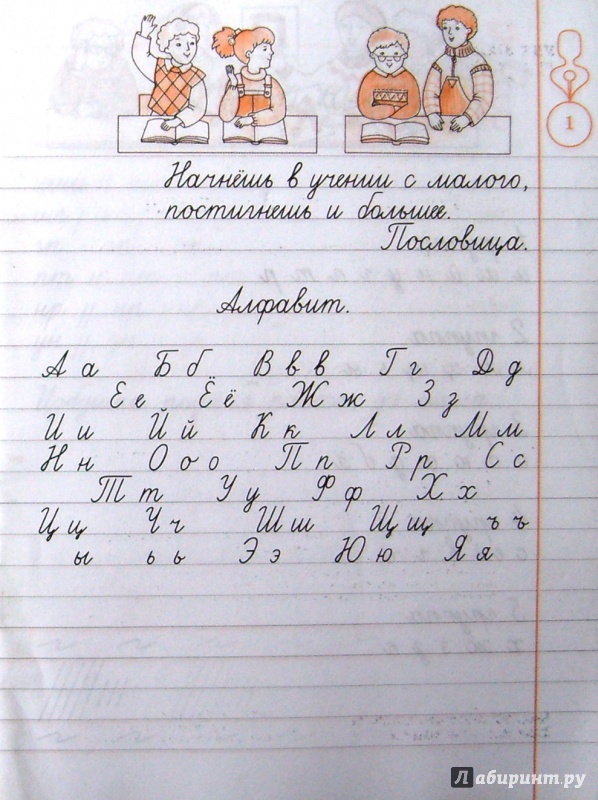 1
Начнёшь в учении с малого,
постигнешь и большее.
Пословица.
Алфавит.
А а Б б В в в Г г Д д
Е е Ё ё Ж ж З з
И и Й й К к Л л М м
Н н О о о П п Р р С с
Т т У у Ф ф Х х
Ц ц Ч ч Ш ш Щ щ ъ ъ
ы ь ь Э э Ю ю Я я
Лабиринт.ру